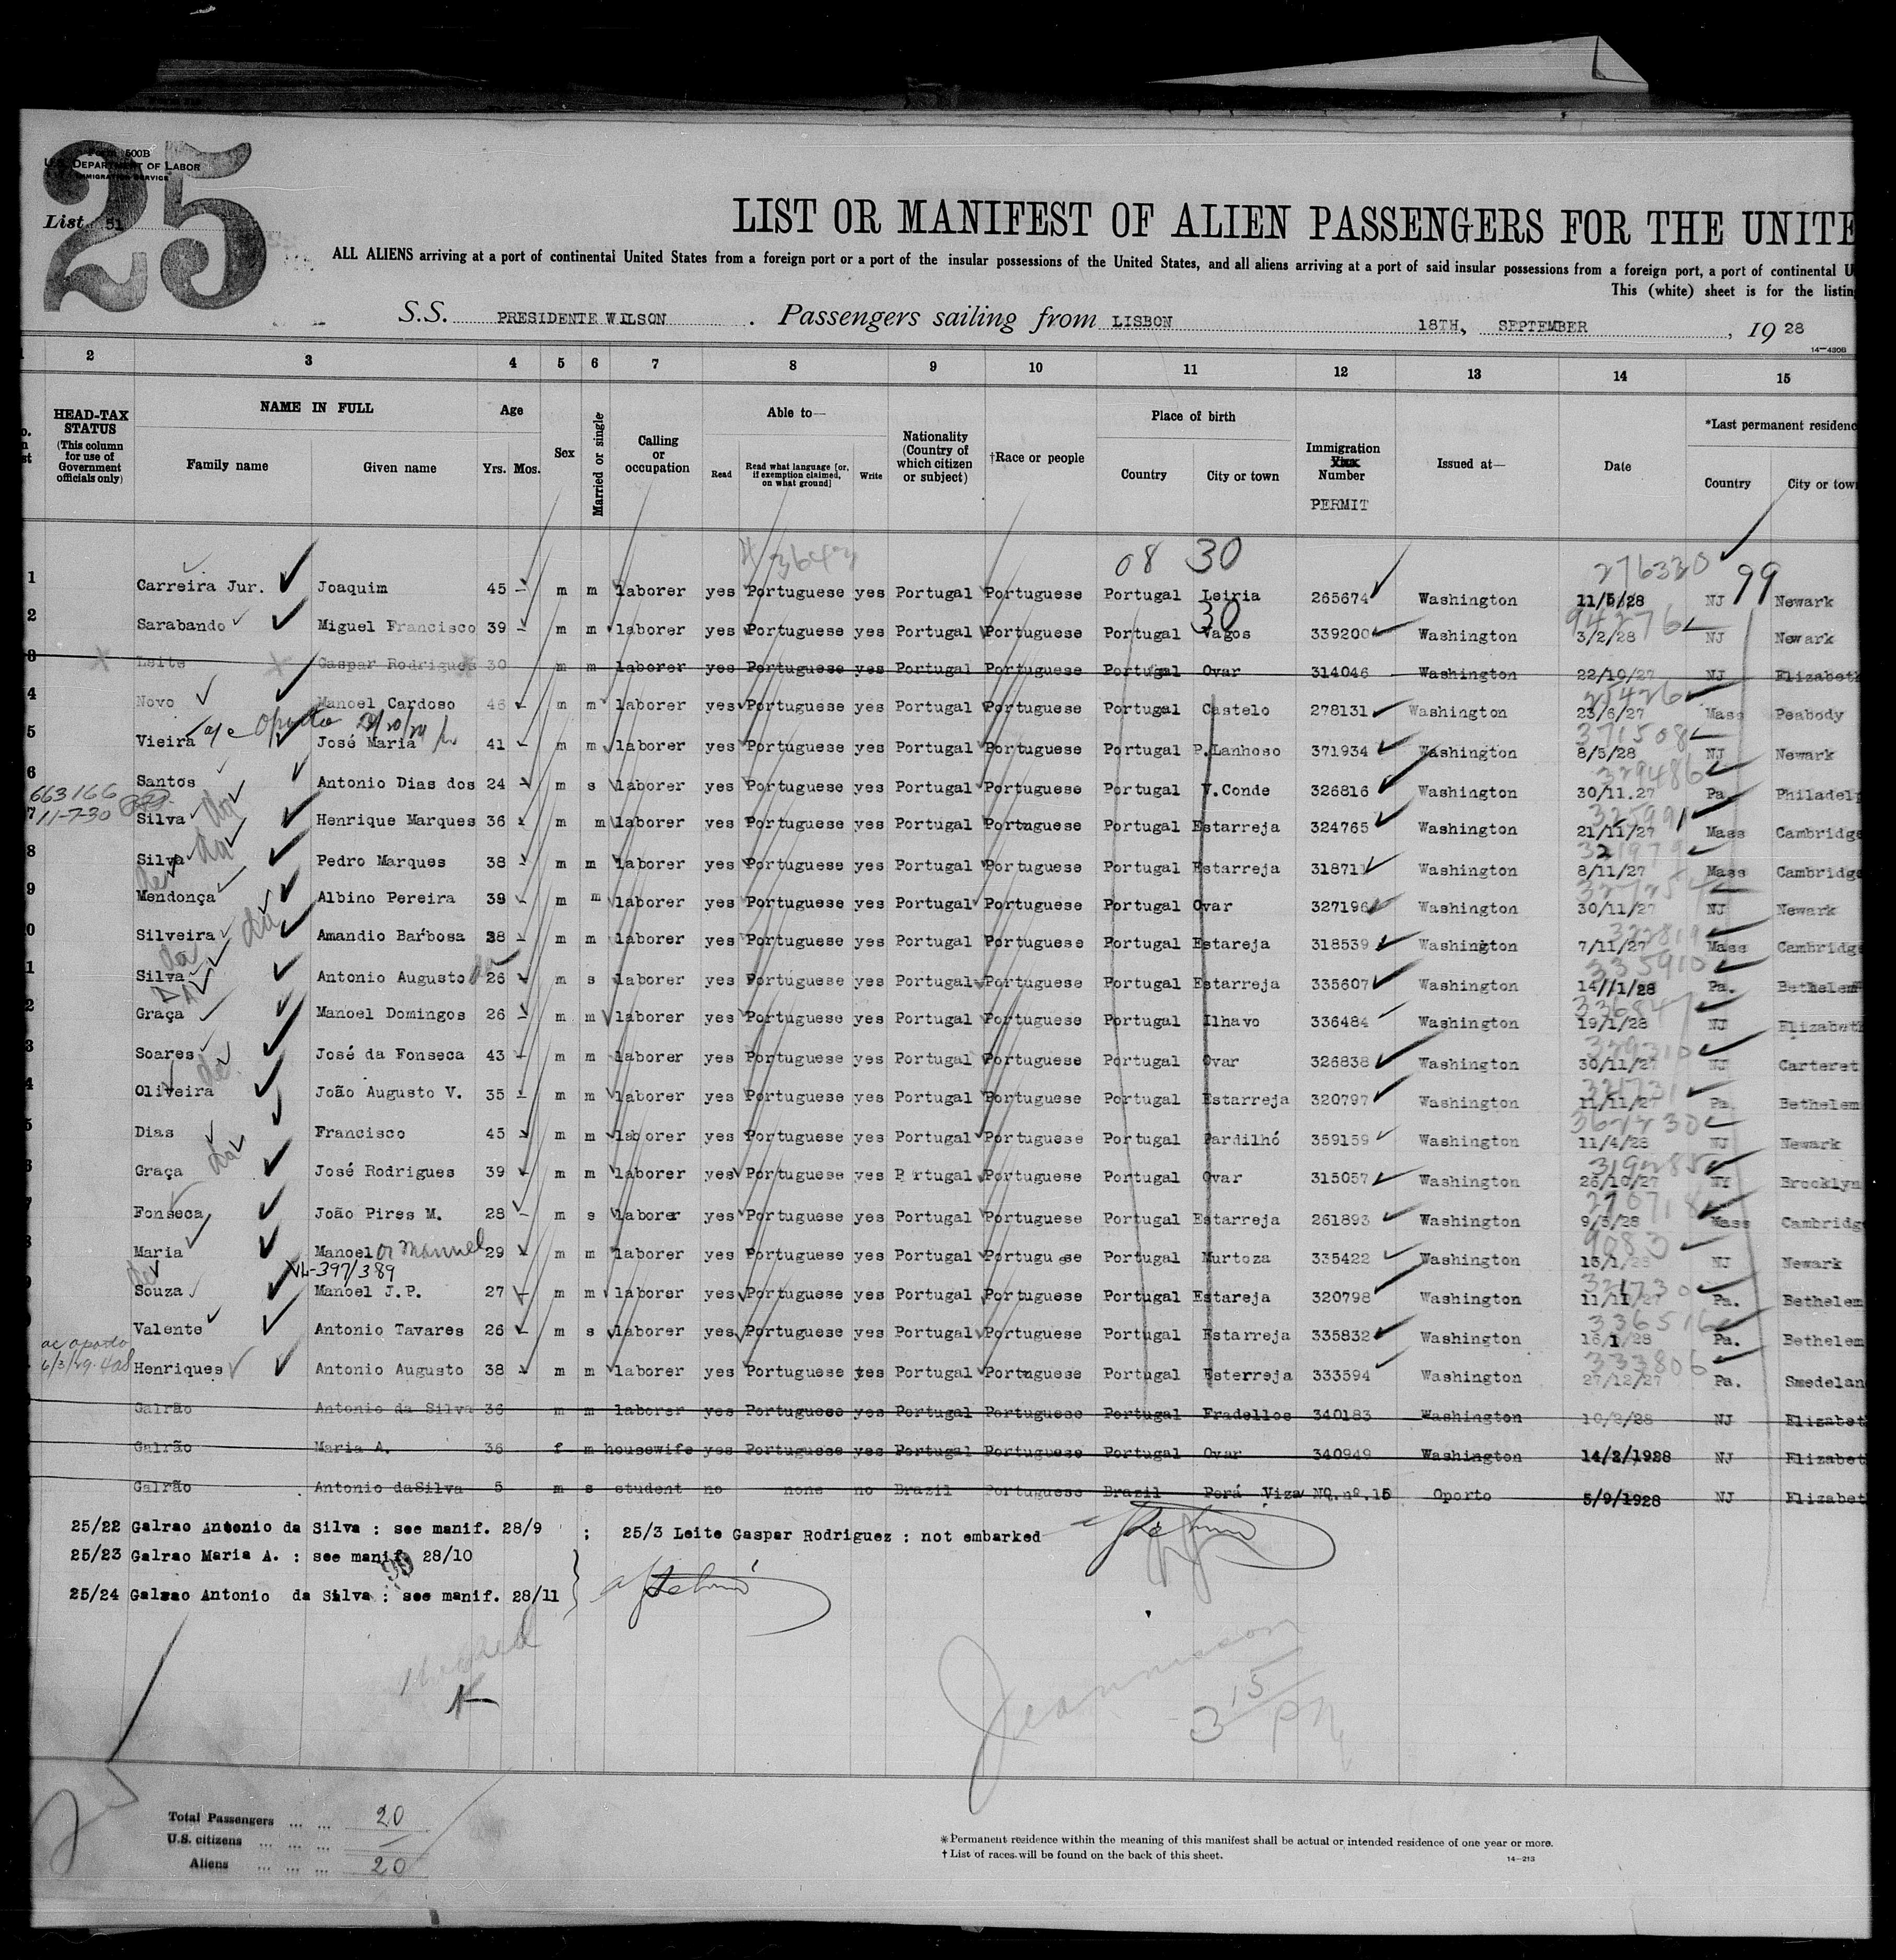 25
Form 500B
U.S. DEPARTMENT OF LABOR
IMMIGRATION SERVICE
List 51
LIST OR MANIFEST OF ALIEN PASSENGERS FOR THE UNITE
ALL ALIENS arriving at a port of continental United States from a foreign port or a port of the insular possessions of the United States, and all aliens arriving at a port of said insular possessions from a foreign port, a port of continental U
This (white) sheet is for the listin
S.S. PRESIDENTE WILSON . Passengers sailing from LISBON 18TH, SEPTEMBER , 19 28
14-430B
2 3 4 5 6 7 8 9 10 11 12 13 14 15
HEAD-TAX STATUS (This column for use of Government officials only)
NAME IN FULL
Family name Given name
Age
Yrs. Mos.
Sex
Married or single
Calling or occupation
Able to—
Read Read what language [or, if exemption claimed, on what ground] Write
Nationality (Country of which citizen or subject)
†Race or people
Place of birth
Country City or town
Immigration Visa Number
PERMIT
Issued at—
Date
*Last permanent residenc
Country City or tow
08 30 276320 99
1 Carreira Jur. Joaquim 45 m m laborer yes Portuguese yes Portugal Portuguese Portugal Leiria 265674 Washington 11/5/28 NJ Newark
30 94276
2 Sarabando Miguel Francisco 39 m m laborer yes Portuguese yes Portugal Portuguese Portugal Vagos 339200 Washington 3/2/28 NJ Newark
3 Leite Gaspar Rodrigues 30 m m laborer yes Portuguese yes Portugal Portuguese Portugal Ovar 314046 Washington 22/10/27 NJ Elizabeth
25426
4 Novo Manoel Cardoso 46 m m laborer yes Portuguese yes Portugal Portuguese Portugal Castelo 278131 Washington 23/6/27 Mass Peabody
371508
5 Vieira José Maria 41 m m laborer yes Portuguese yes Portugal Portuguese Portugal P.Lanhoso 371934 Washington 8/5/28 NJ Newark
329486
6 Santos Antonio Dias dos 24 m s laborer yes Portuguese yes Portugal Portuguese Portugal V.Conde 326816 Washington 30/11.27 Pa. Philadelp
663166
11-7-30
325991
7 Silva da Henrique Marques 36 m m laborer yes Portuguese yes Portugal Portuguese Portugal Estarreja 324765 Washington 21/11/27 Mass Cambridge
321979
8 Silva da Pedro Marques 38 m m laborer yes Portuguese yes Portugal Portuguese Portugal Estarreja 318711 Washington 8/11/27 Mass Cambridge
9 Mendonça de Albino Pereira 39 m m laborer yes Portuguese yes Portugal Portuguese Portugal Ovar 327196 Washington 30/11/27 NJ Newark
322819
0 Silveira da Amandio Barbosa 38 m m laborer yes Portuguese yes Portugal Portuguese Portugal Estareja 318539 Washington 7/11/27 Mass Cambridge
335910
1 Silva da Antonio Augusto 26 m s laborer yes Portuguese yes Portugal Portuguese Portugal Estarreja 335607 Washington 14/1/28 Pa. Bethelem
2 Graça Manoel Domingos 26 m m laborer yes Portuguese yes Portugal Portuguese Portugal Ilhavo 336484 Washington 19/1/28 NJ Elizabeth
329310
3 Soares José da Fonseca 43 m m laborer yes Portuguese yes Portugal Portuguese Portugal Ovar 326838 Washington 30/11/27 NJ Carteret
321731
4 Oliveira João Augusto V. 35 m m laborer yes Portuguese yes Portugal Portuguese Portugal Estarreja 320797 Washington 11/11/27 Pa Bethelem
5 Dias Francisco 45 m m laborer yes Portuguese yes Portugal Portuguese Portugal Pardilhó 359159 Washington 11/4/28 NJ Newark
319285
6 Graça da José Rodrigues 39 m m laborer yes Portuguese yes P rtugal Portuguese Portugal Ovar 315057 Washington 26/10/27 NY Brooklyn
276718
7 Fonseca João Pires M. 28 m s laborer yes Portuguese yes Portugal Portuguese Portugal Estarreja 261893 Washington 9/5/28 Mass Cambridge
9083
8 Maria Manoel or Manuel 29 m m laborer yes Portuguese yes Portugal Portuguese Portugal Murtoza 335422 Washington 13/1/28 NJ Newark
VL-397/389
321730
9 Souza de Manoel J.P. 27 m m laborer yes Portuguese yes Portugal Portuguese Portugal Estareja 320798 Washington 11/11/27 Pa. Bethelem
336516
Valente Antonio Tavares 26 m s laborer yes Portuguese yes Portugal Portuguese Portugal Estarreja 335832 Washington 16/1/28 Pa. Bethelem
333806
Henriques Antonio Augusto 38 m m laborer yes Portuguese yes Portugal Portuguese Portugal Esterreja 333594 Washington 27/12/27 Pa. Smedelan
Galrão Antonio da Silva 36 m m laborer yes Portuguese yes Portugal Portuguese Portugal Fradellos 340183 Washington 10/2/28 NJ Elizabet
Galrão Maria A. 36 f m housewife yes Portuguese yes Portugal Portuguese Portugal Ovar 340949 Washington 14/2/1928 NJ Elizabet
Galrão Antonio daSilva 5 m s student no none no Brazil Portuguese Brazil Pará Viza NQ.nº.15 Oporto 5/9/1928 NJ Elizabet
25/22 Galrao Antonio da Silva : see manif. 28/9 ; 25/3 Leite Gaspar Rodriguez : not embarked
25/23 Galrao Maria A. : see manif. 28/10
25/24 Galrao Antonio da Silva : see manif. 28/11
3 15 PM
Total Passengers ... ... 20
U.S. citizens ... ... ... —
Aliens ... ... ... 20
* Permanent residence within the meaning of this manifest shall be actual or intended residence of one year or more.
† List of races will be found on the back of this sheet.
14-213